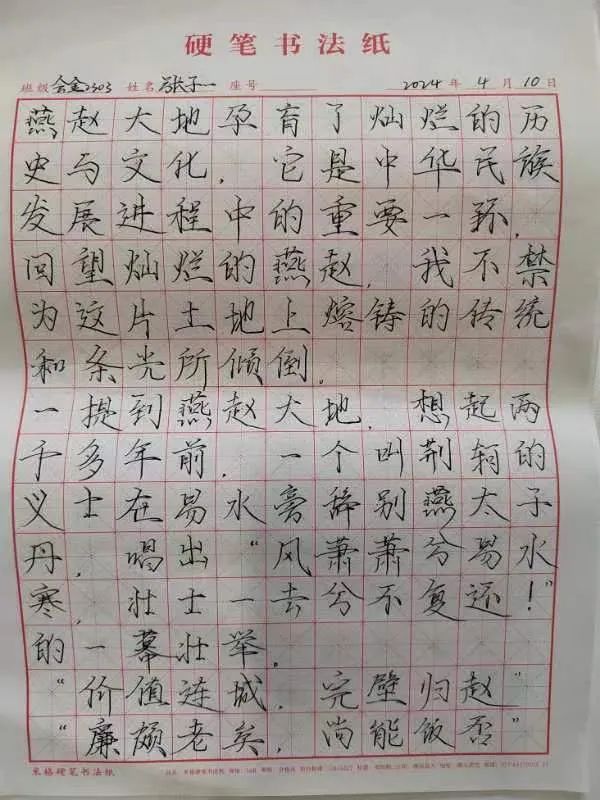 硬笔书法纸
班级 会金2303 姓名 张子一 座号 2024年4月10日
燕赵大地孕育了灿烂的历
史与文化，它是中华民族
发展进程中的重要一环，
回望灿烂的燕赵，我不禁
为这片土地上熔铸的传统
和条光所倾倒。
一提到燕赵大地，想起两
千多年前，一个叫荆轲的
义士在易水旁辞别燕太子
丹，唱出“风萧萧兮易水
寒，壮士一去兮不复还！”
的一幕壮举。
“价值连城，完璧归赵”
“廉颇老矣，尚能饭否”
米格硬笔书法纸